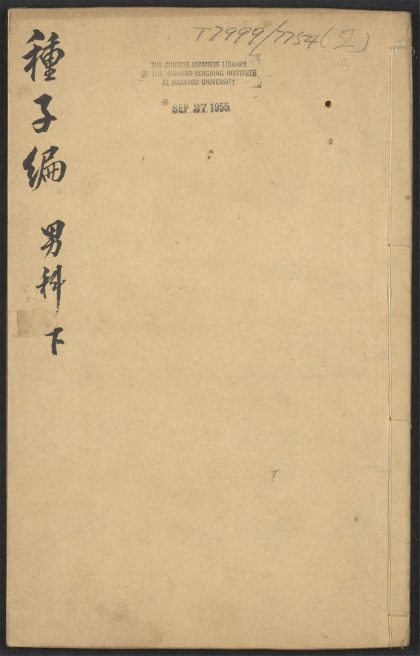 種子編 男科 下
T7999/7754(2)
THE CHINESE-JAPANESE LIBRARY
OF THE HARVARD-YENCHING INSTITUTE
AT HARVARD UNIVERSITY.
SEP 27 1955